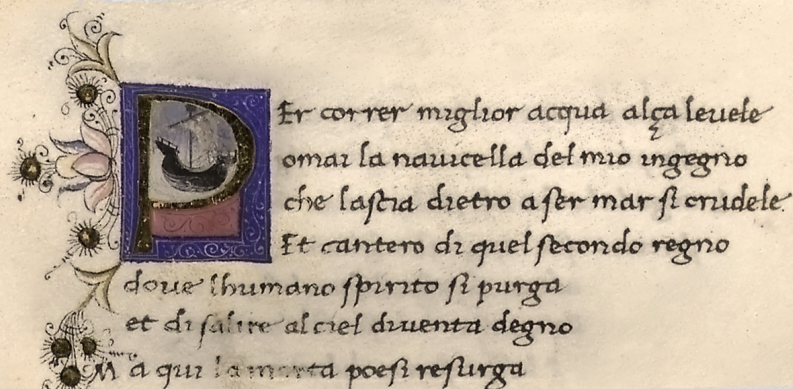 PEr correr miglior acqua alça le vele
omai la navicella del mio ingegno
che lascia dietro a ser mar si crudele
Et cantero di quel secondo regno
dove lhumano spirito si purga
et di salire al ciel diventa degno
Ma qui la morta poesi resurga